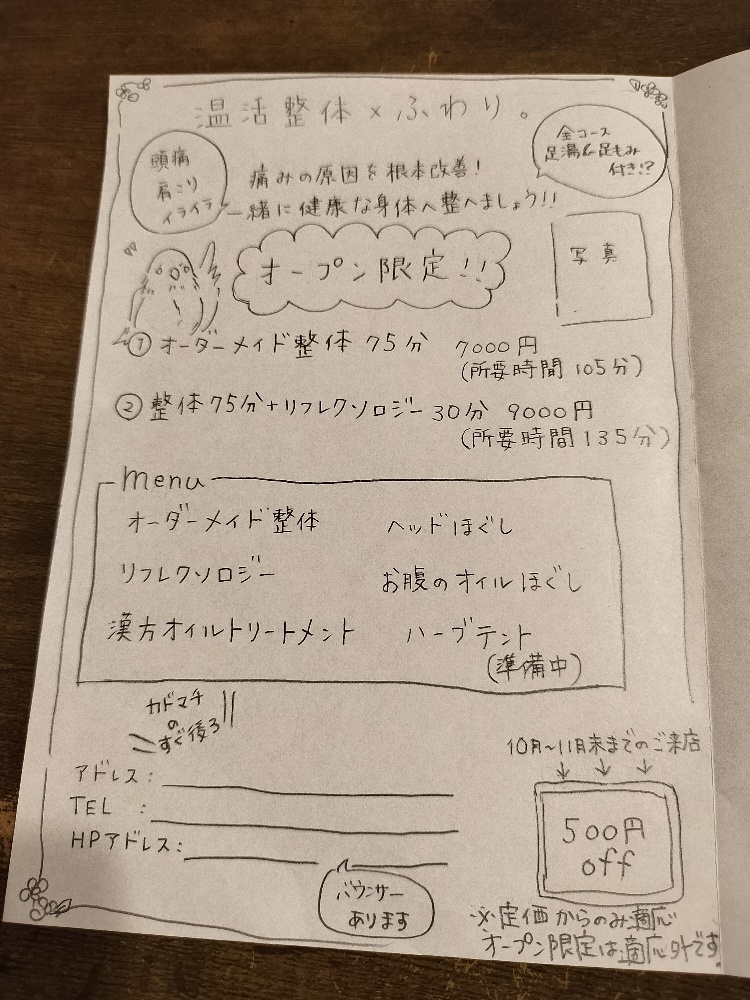 温活整体×ふわり。
頭痛
肩こり
イライラ
全コース
足湯&足もみ
付き!?
痛みの原因を根本改善!
一緒に健康な身体へ整へましょう!!
オープン限定!!
写真
① オーダーメイド整体 75分 7000円
(所要時間 105分)
② 整体75分+リフレクソロジー 30分 9000円
(所要時間 135分)
menu
オーダーメイド整体 ヘッドほぐし
リフレクソロジー お腹のオイルほぐし
漢方オイルトリートメント ハーブテント
(準備中)
カドマチ
の
すぐ後ろ
アドレス:
TEL :
HPアドレス:
バウンサー
あります
10月〜11月末までのご来店
500円
off
※定価からのみ適応
オープン限定は適応外です。